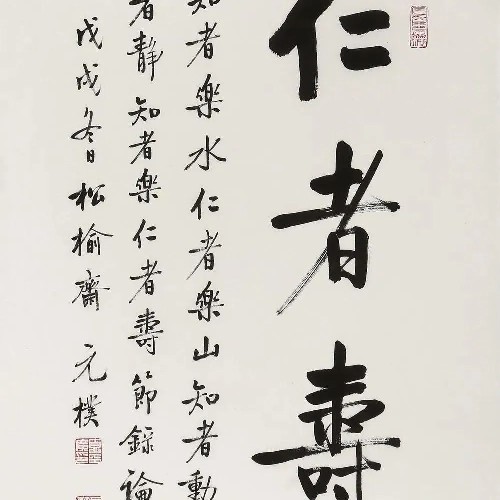 仁者壽
知者樂水仁者樂山知者動
者靜知者樂仁者壽節錄論
戊戌冬日松榆齋元樸